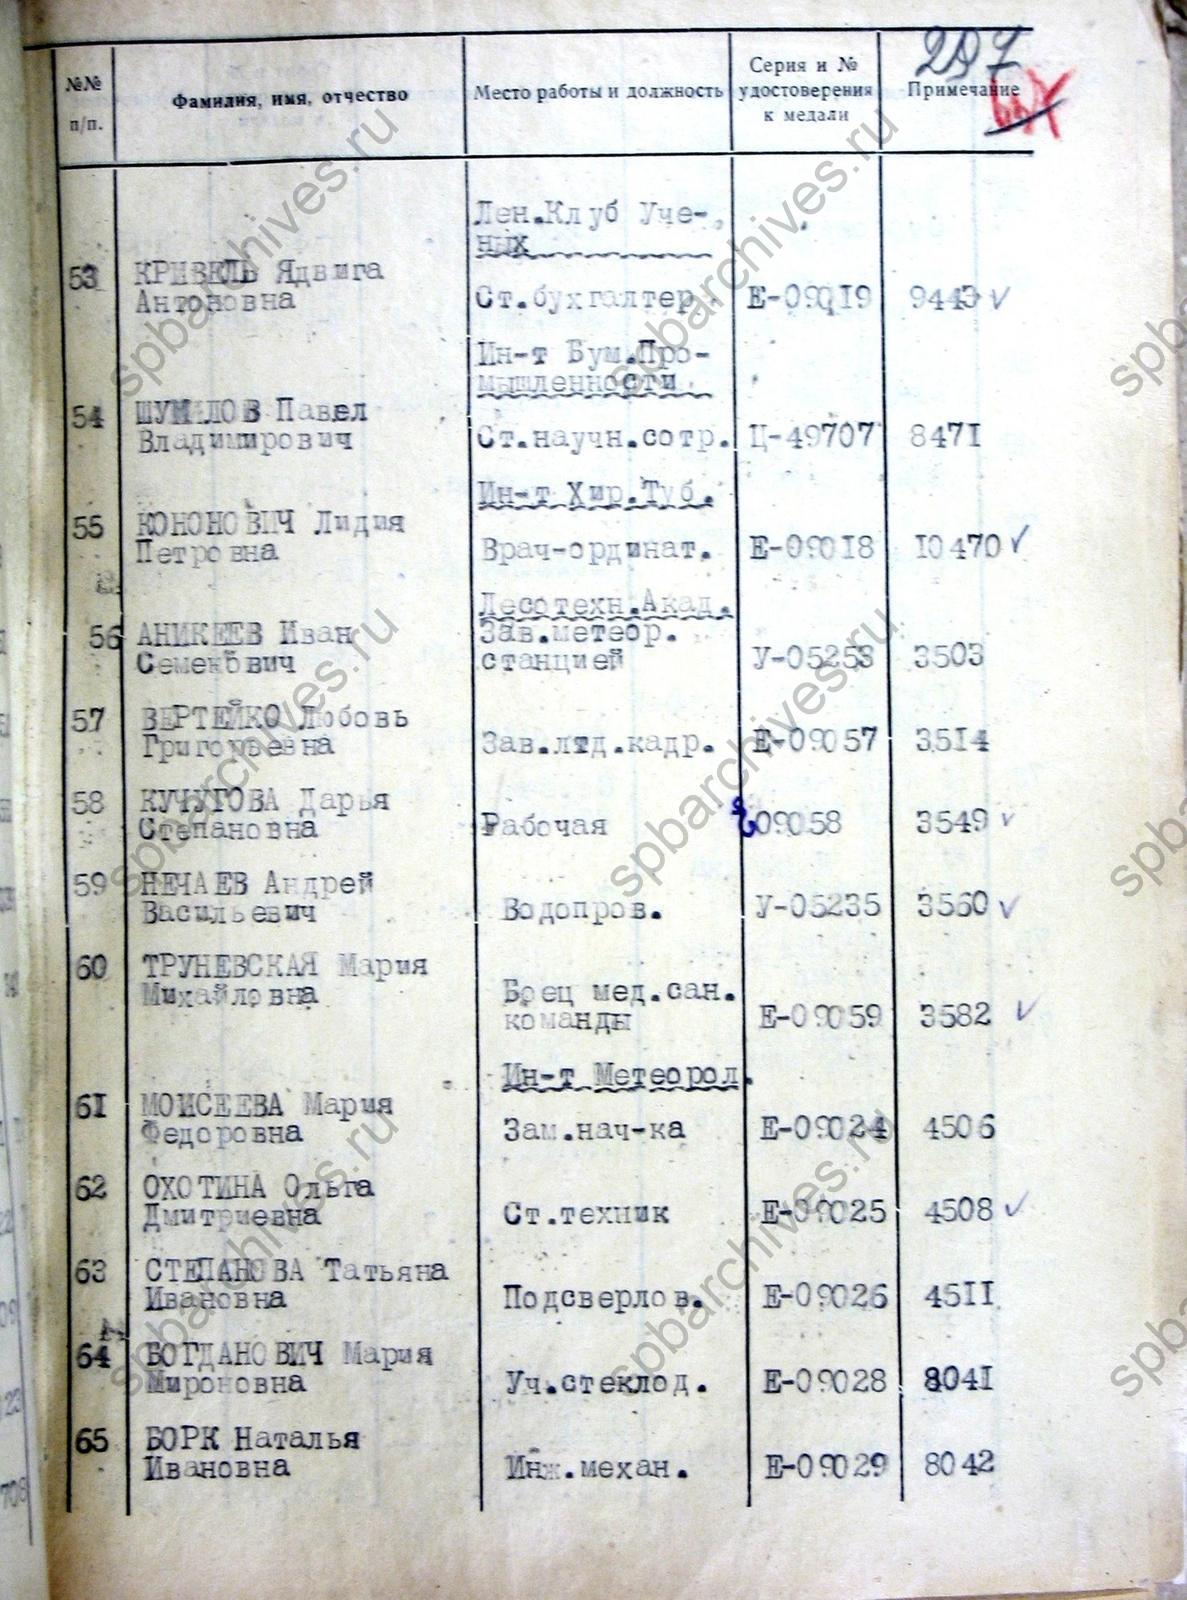 297
№№ п/п. Фамилия, имя, отчество Место работы и должность Серия и № удостоверения к медали Примечание
Лен.Клуб Уче-
ных
53 КРИВЕЛЬ Ядвига
Антоновна Ст.бухгалтер. Е-09019 9443 ✓
Ин-т Бум.Про-
мышленности
54 ШУМИЛОВ Павел
Владимирович Ст.научн.сотр. Ц-49707 8471
Ин-т Хир.Туб.
55 КОНОНОВИЧ Лидия
Петровна Врач-ординат. Е-09018 10470 ✓
Лесотехн.Акад.
56 АНИКЕЕВ Иван Зав.метеор.
Семенович станцией У-05253 3503
57 ВЕРТЕЙКО Любовь
Григорьевна Зав.лтд.кадр. Е-09057 3514
58 КУЧУГОВА Дарья
Степановна Рабочая 09058 3549 ✓
59 НЕЧАЕВ Андрей
Васильевич Водопров. У-05235 3560 ✓
60 ТРУНЕВСКАЯ Мария
Михайловна Боец мед.сан.
команды Е-09059 3582 ✓
Ин-т Метеорол.
61 МОИСЕЕВА Мария
Федоровна Зам.нач-ка Е-09024 4506
62 ОХОТИНА Ольга
Дмитриевна Ст.техник Е-09025 4508 ✓
63 СТЕПАНОВА Татьяна
Ивановна Подсверлов. Е-09026 4511
64 БОГДАНОВИЧ Мария
Мироновна Уч.стеклод. Е-09028 8041
65 БОРК Наталья
Ивановна Инж.механ. Е-09029 8042
spbarchives.ru